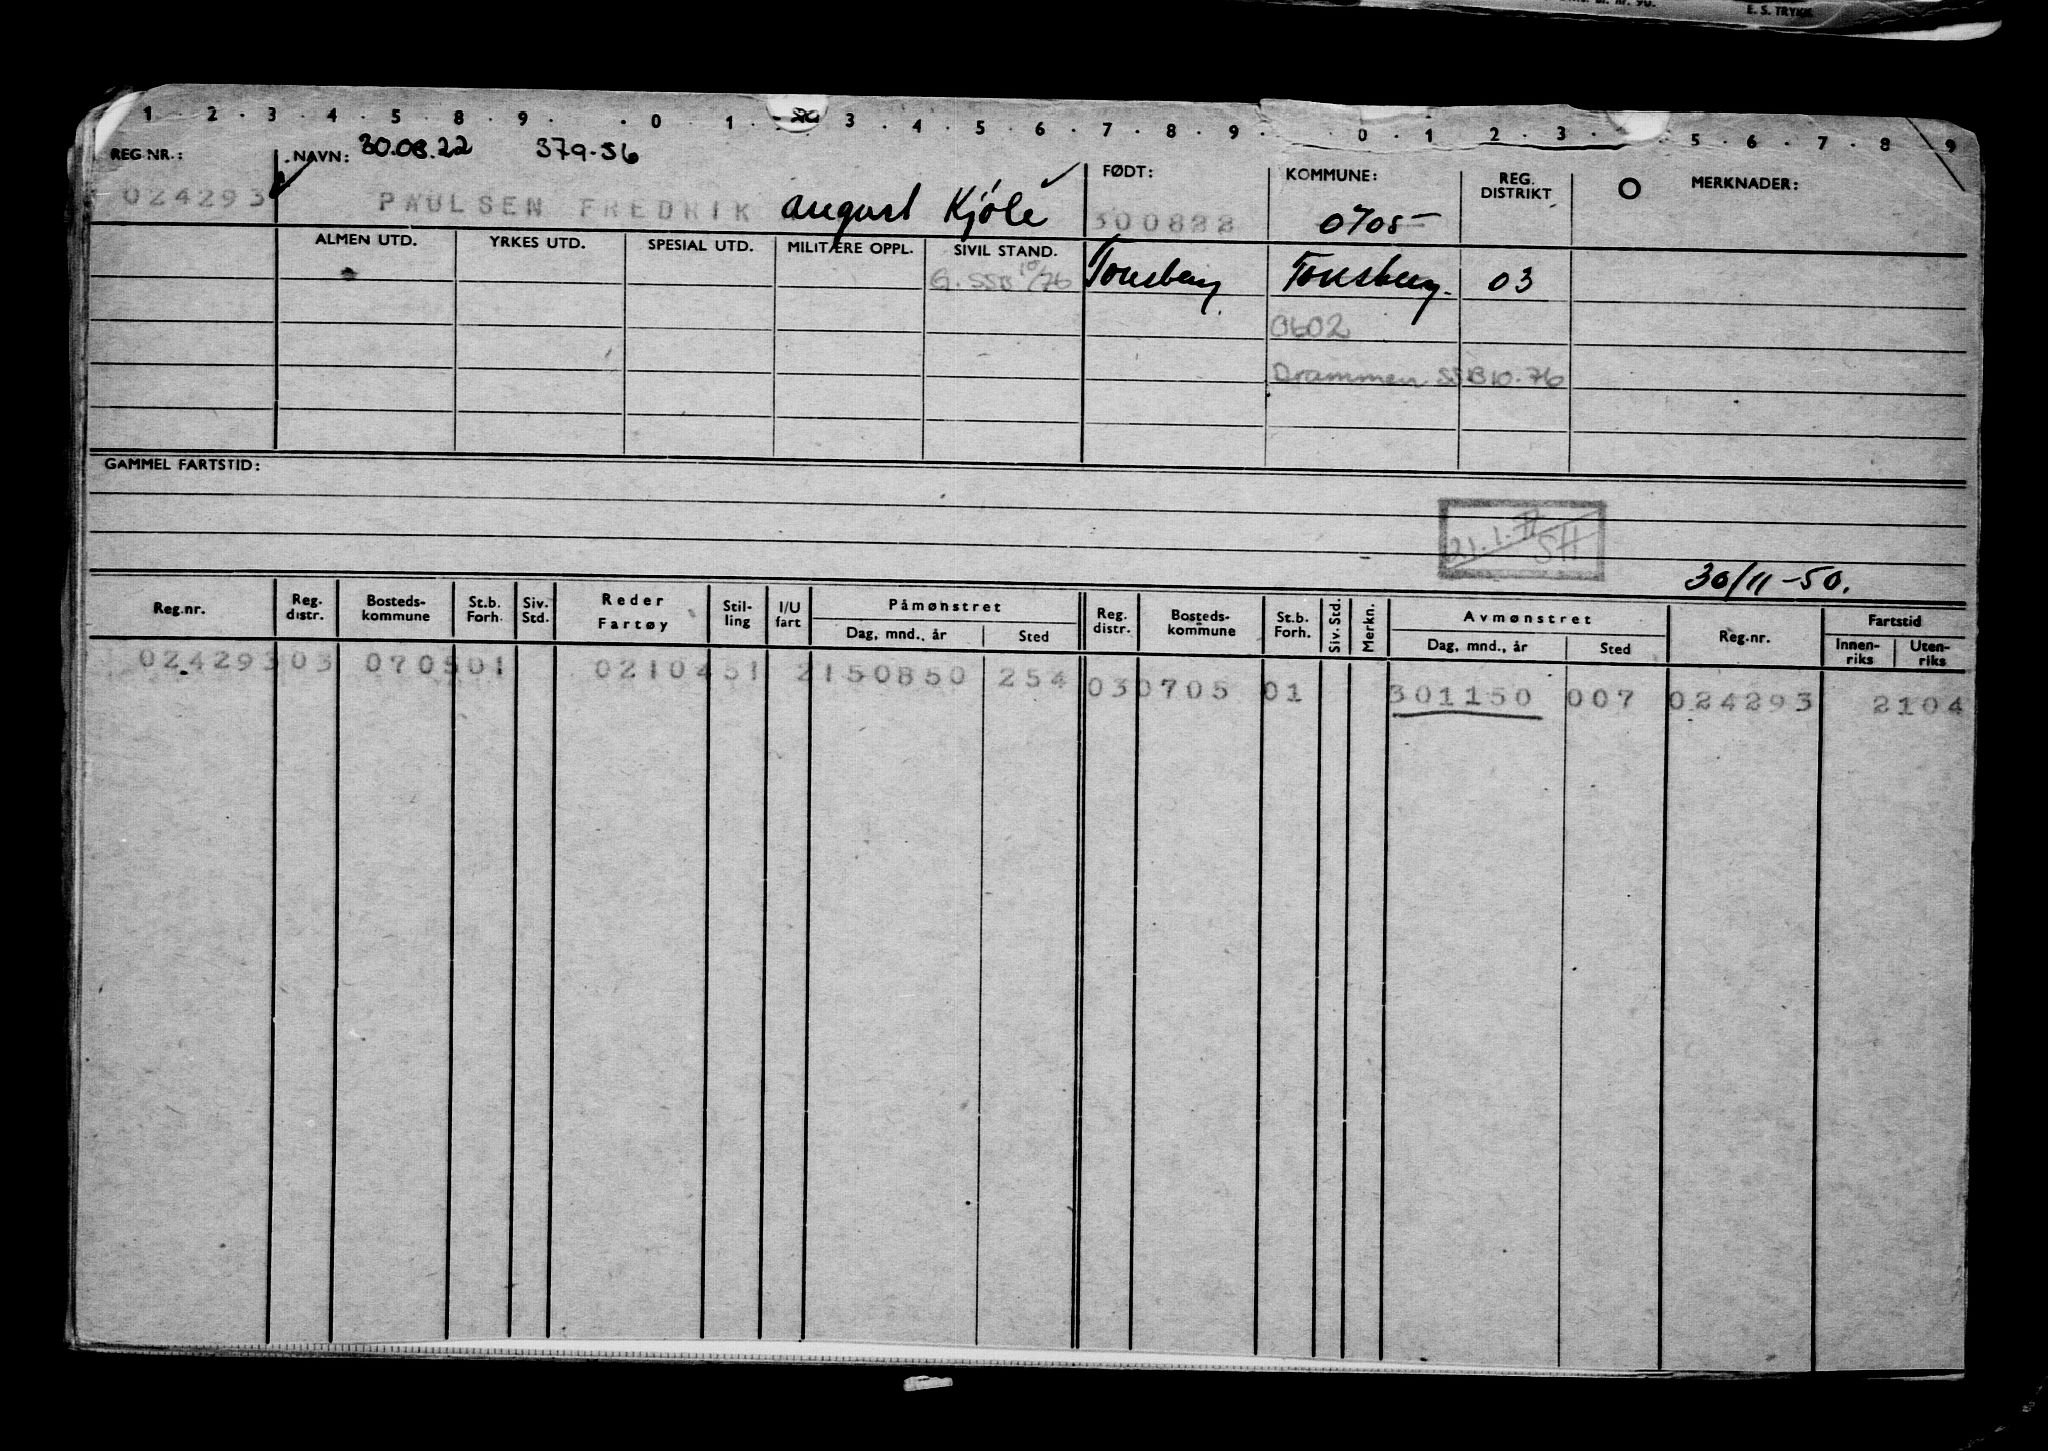 E. S. TRYKK
1 . 2 . 3 . 4 . 5 . 8 . 9 . . 0 . 1 . 3 . 4 . 5 . 6 . 7 . 8 . 9 . . 0 . 1 . 2 . 3 . 5 . 6 . 7 . 8 . 9
REG NR.: NAVN: 30.08.22 379-56 FØDT: KOMMUNE: REG. DISTRIKT O MERKNADER:
024293 PAULSEN FREDRIK August Kjøle 300822 0705-
ALMEN UTD. YRKES UTD. SPESIAL UTD. MILITÆRE OPPL. SIVIL STAND.
G. SSB 10/76 Tønsberg Tønsberg. 03
0602
Drammen SSB 10.76
GAMMEL FARTSTID:
SH
30/11-50.
Reg.nr. Reg. distr. Bosteds-kommune St.b. Forh. Siv. Std. Reder Fartøy Stil-ling I/U fart Påmønstret Reg. distr. Bosteds-kommune St.b. Forh. Siv. Std. Merkn. Avmønstret Reg.nr. Fartstid
Dag, mnd., år Sted Dag, mnd., år Sted Innen-riks Uten-riks
024293 03 0705 01 0210451 2 150850 254 03 0705 01 301150 007 024293 2104